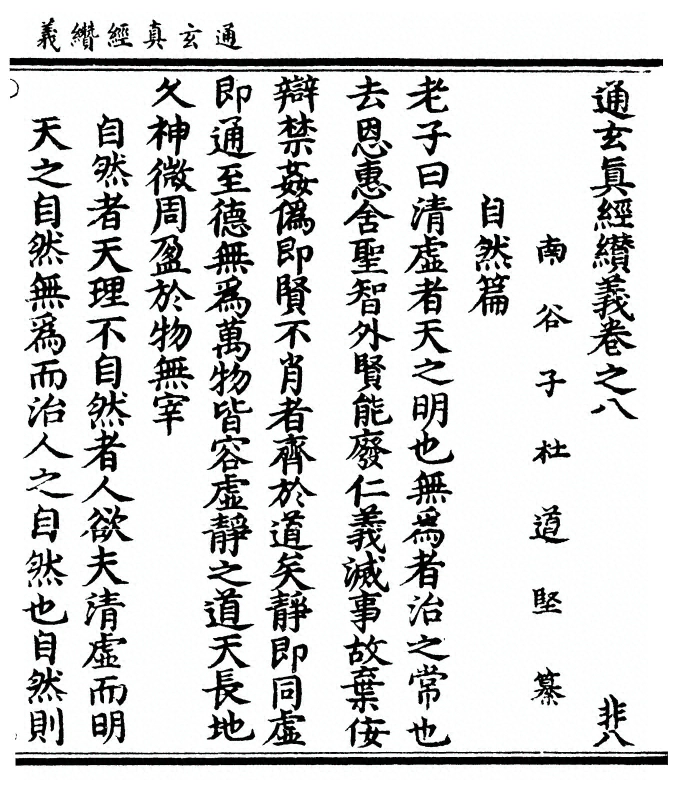 通玄真經纘義
通玄眞經纘義卷之八
非八
南谷子杜道堅纂
自然篇
老子曰清虛者天之明也無爲者治之常也
去恩惠舍聖智外賢能廢仁義滅事故棄佞
辯禁姦僞即賢不肖者齊於道矣靜即同虛
即通至德無爲萬物皆容虛靜之道天長地
久神微周盈於物無宰
自然者天理不自然者人欲夫清虛而明
天之自然無爲而治人之自然也自然則